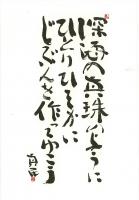 深海の真珠のように
ひとりひそかに
じぶんを作ってゆこう
真民